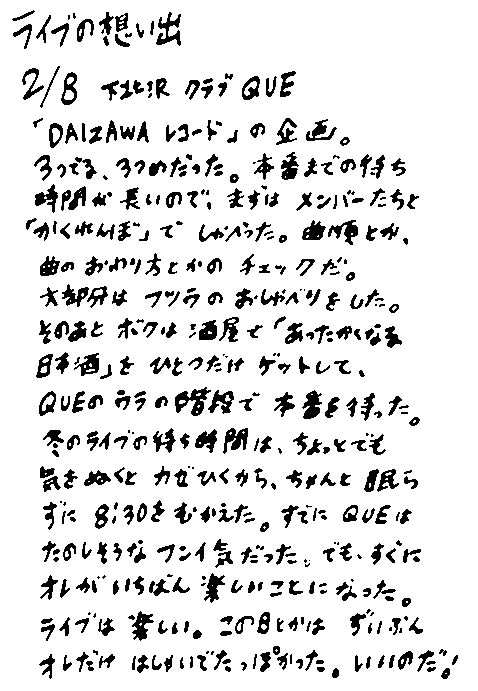 ライブの想い出
2/8 下北沢 クラブQUE
「DAIZAWA レコード」の企画。
3つでる、3つめだった。本番までの待ち
時間が長いので、まずは メンバーたちと
「かくれんぼ」で しゃべった。曲順とか、
曲の おわり方とかの チェックだ。
大部分は フツウの おしゃべりをした。
そのあと ボクは 酒屋で「あったかくなる
日本酒」を ひとつだけ ゲットして、
QUEの ウラの 階段で 本番を待った。
冬のライブの待ち時間は、ちょっとでも
気をぬくと カゼひくから、ちゃんと 眠ら
ずに 8:30を むかえた。すでに QUEは
たのしそうな フンイ気だった。でも、すぐに
オレが いちばん 楽しいことに なった。
ライブは 楽しい。この日とかは ずいぶん
オレだけ はしゃいでたっぽかった。いいのだ!